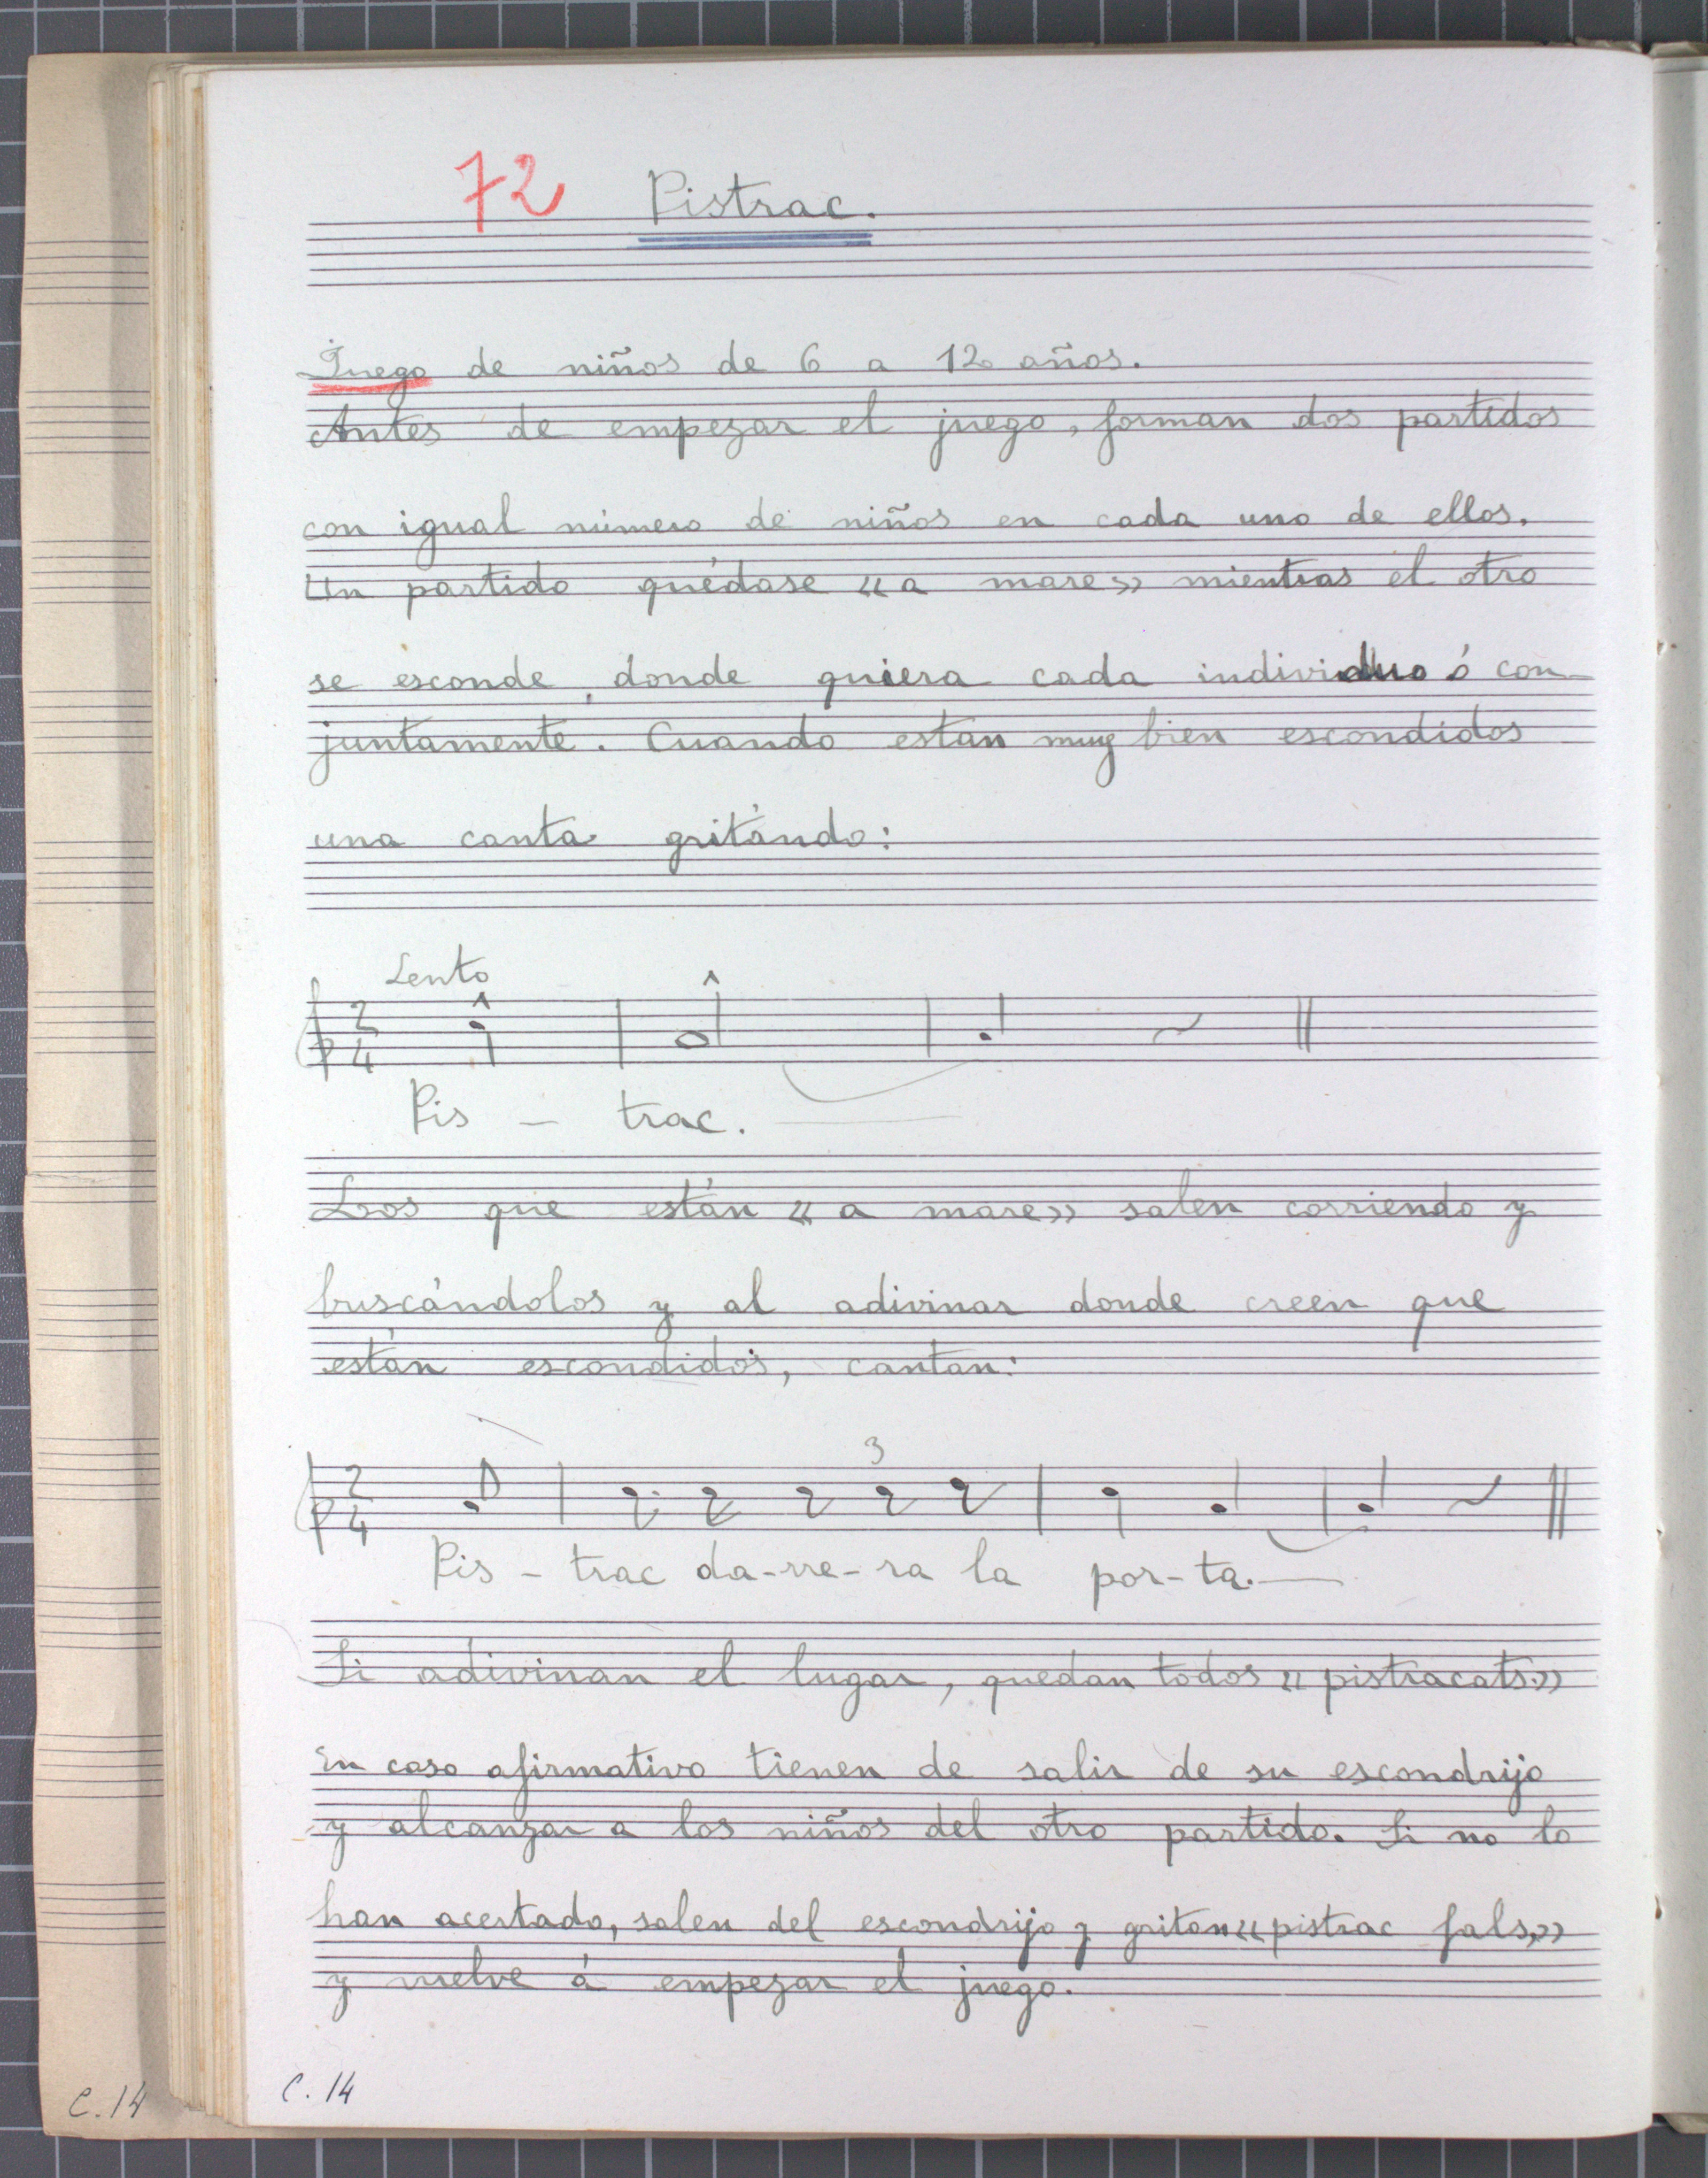 72 Pistrac.
Juego de niños de 6 a 12 años.
Antes de empezar el juego, forman dos partidos
con igual número de niños en cada uno de ellos.
Un partido quédase «a mare» mientras el otro
se esconde donde quiera cada individuo ó con-
juntamente. Cuando estan muy bien escondidos
una canta gritando:
Lento
2
4
Pis - trac.
Los que están «a mare» salen corriendo y
buscándolos y al adivinar donde creen que
están escondidos, cantan:
3
2
4
Pis - trac da-rre-ra la por-ta.
Si adivinan el lugar, quedan todos «pistracats.»
En caso afirmativo tienen de salir de su escondrijo
y alcanzar a los niños del otro partido. Si no lo
han acertado, salen del escondrijo y gritan «pistrac fals,»
y vuelve á empezar el juego.
C. 14
C. 14